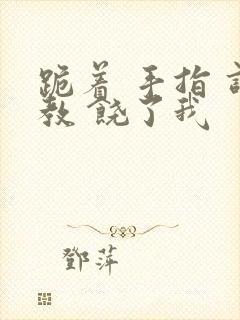 跪着 手指 训
教 饶了我
鄧萍